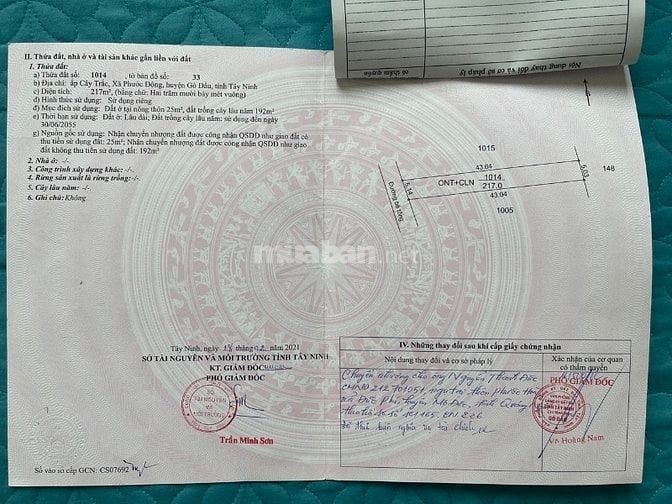 II. Thửa đất, nhà ở và tài sản khác gắn liền với đất
1. Thửa đất:
a) Thửa đất số: 1014, tờ bản đồ số: 33
b) Địa chỉ: ấp Cây Trắc, Xã Phước Đông, huyện Gò Dầu, tỉnh Tây Ninh
c) Diện tích: 217m², (bằng chữ: Hai trăm mười bảy mét vuông)
d) Hình thức sử dụng: Sử dụng riêng
đ) Mục đích sử dụng: Đất ở tại nông thôn 25m², đất trồng cây lâu năm 192m²
e) Thời hạn sử dụng: Đất ở: Lâu dài; Đất trồng cây lâu năm: sử dụng đến ngày
30/06/2055
g) Nguồn gốc sử dụng: Nhận chuyển nhượng đất được công nhận QSDĐ như giao đất có
thu tiền sử dụng đất: 25m²; Nhận chuyển nhượng đất được công nhận QSDĐ như giao
đất không thu tiền sử dụng đất: 192m²
2. Nhà ở: -/-
3. Công trình xây dựng khác: -/-
4. Rừng sản xuất là rừng trồng: -/-
5. Cây lâu năm: -/-
6. Ghi chú: Không.
Tây Ninh, ngày 18 tháng 02 năm 2021
SỞ TÀI NGUYÊN VÀ MÔI TRƯỜNG TỈNH TÂY NINH
KT. GIÁM ĐỐC
PHÓ GIÁM ĐỐC
Trần Minh Sơn
Số vào sổ cấp GCN: CS07692
Nội dung thay đổi và cơ sở pháp lý
có thẩm quyền
1015
43.04
148
5.14
ONT+CLN
1014
217.0
5.03
Đường bê tông
43.04
1005
muaban.net
IV. Những thay đổi sau khi cấp giấy chứng nhận
Nội dung thay đổi và cơ sở pháp lý
Xác nhận của cơ quan
có thẩm quyền
Chuyển nhượng cho ông Nguyễn Thành
CMND 212
PHÓ GIÁM ĐỐC
Võ Hoàng Nam